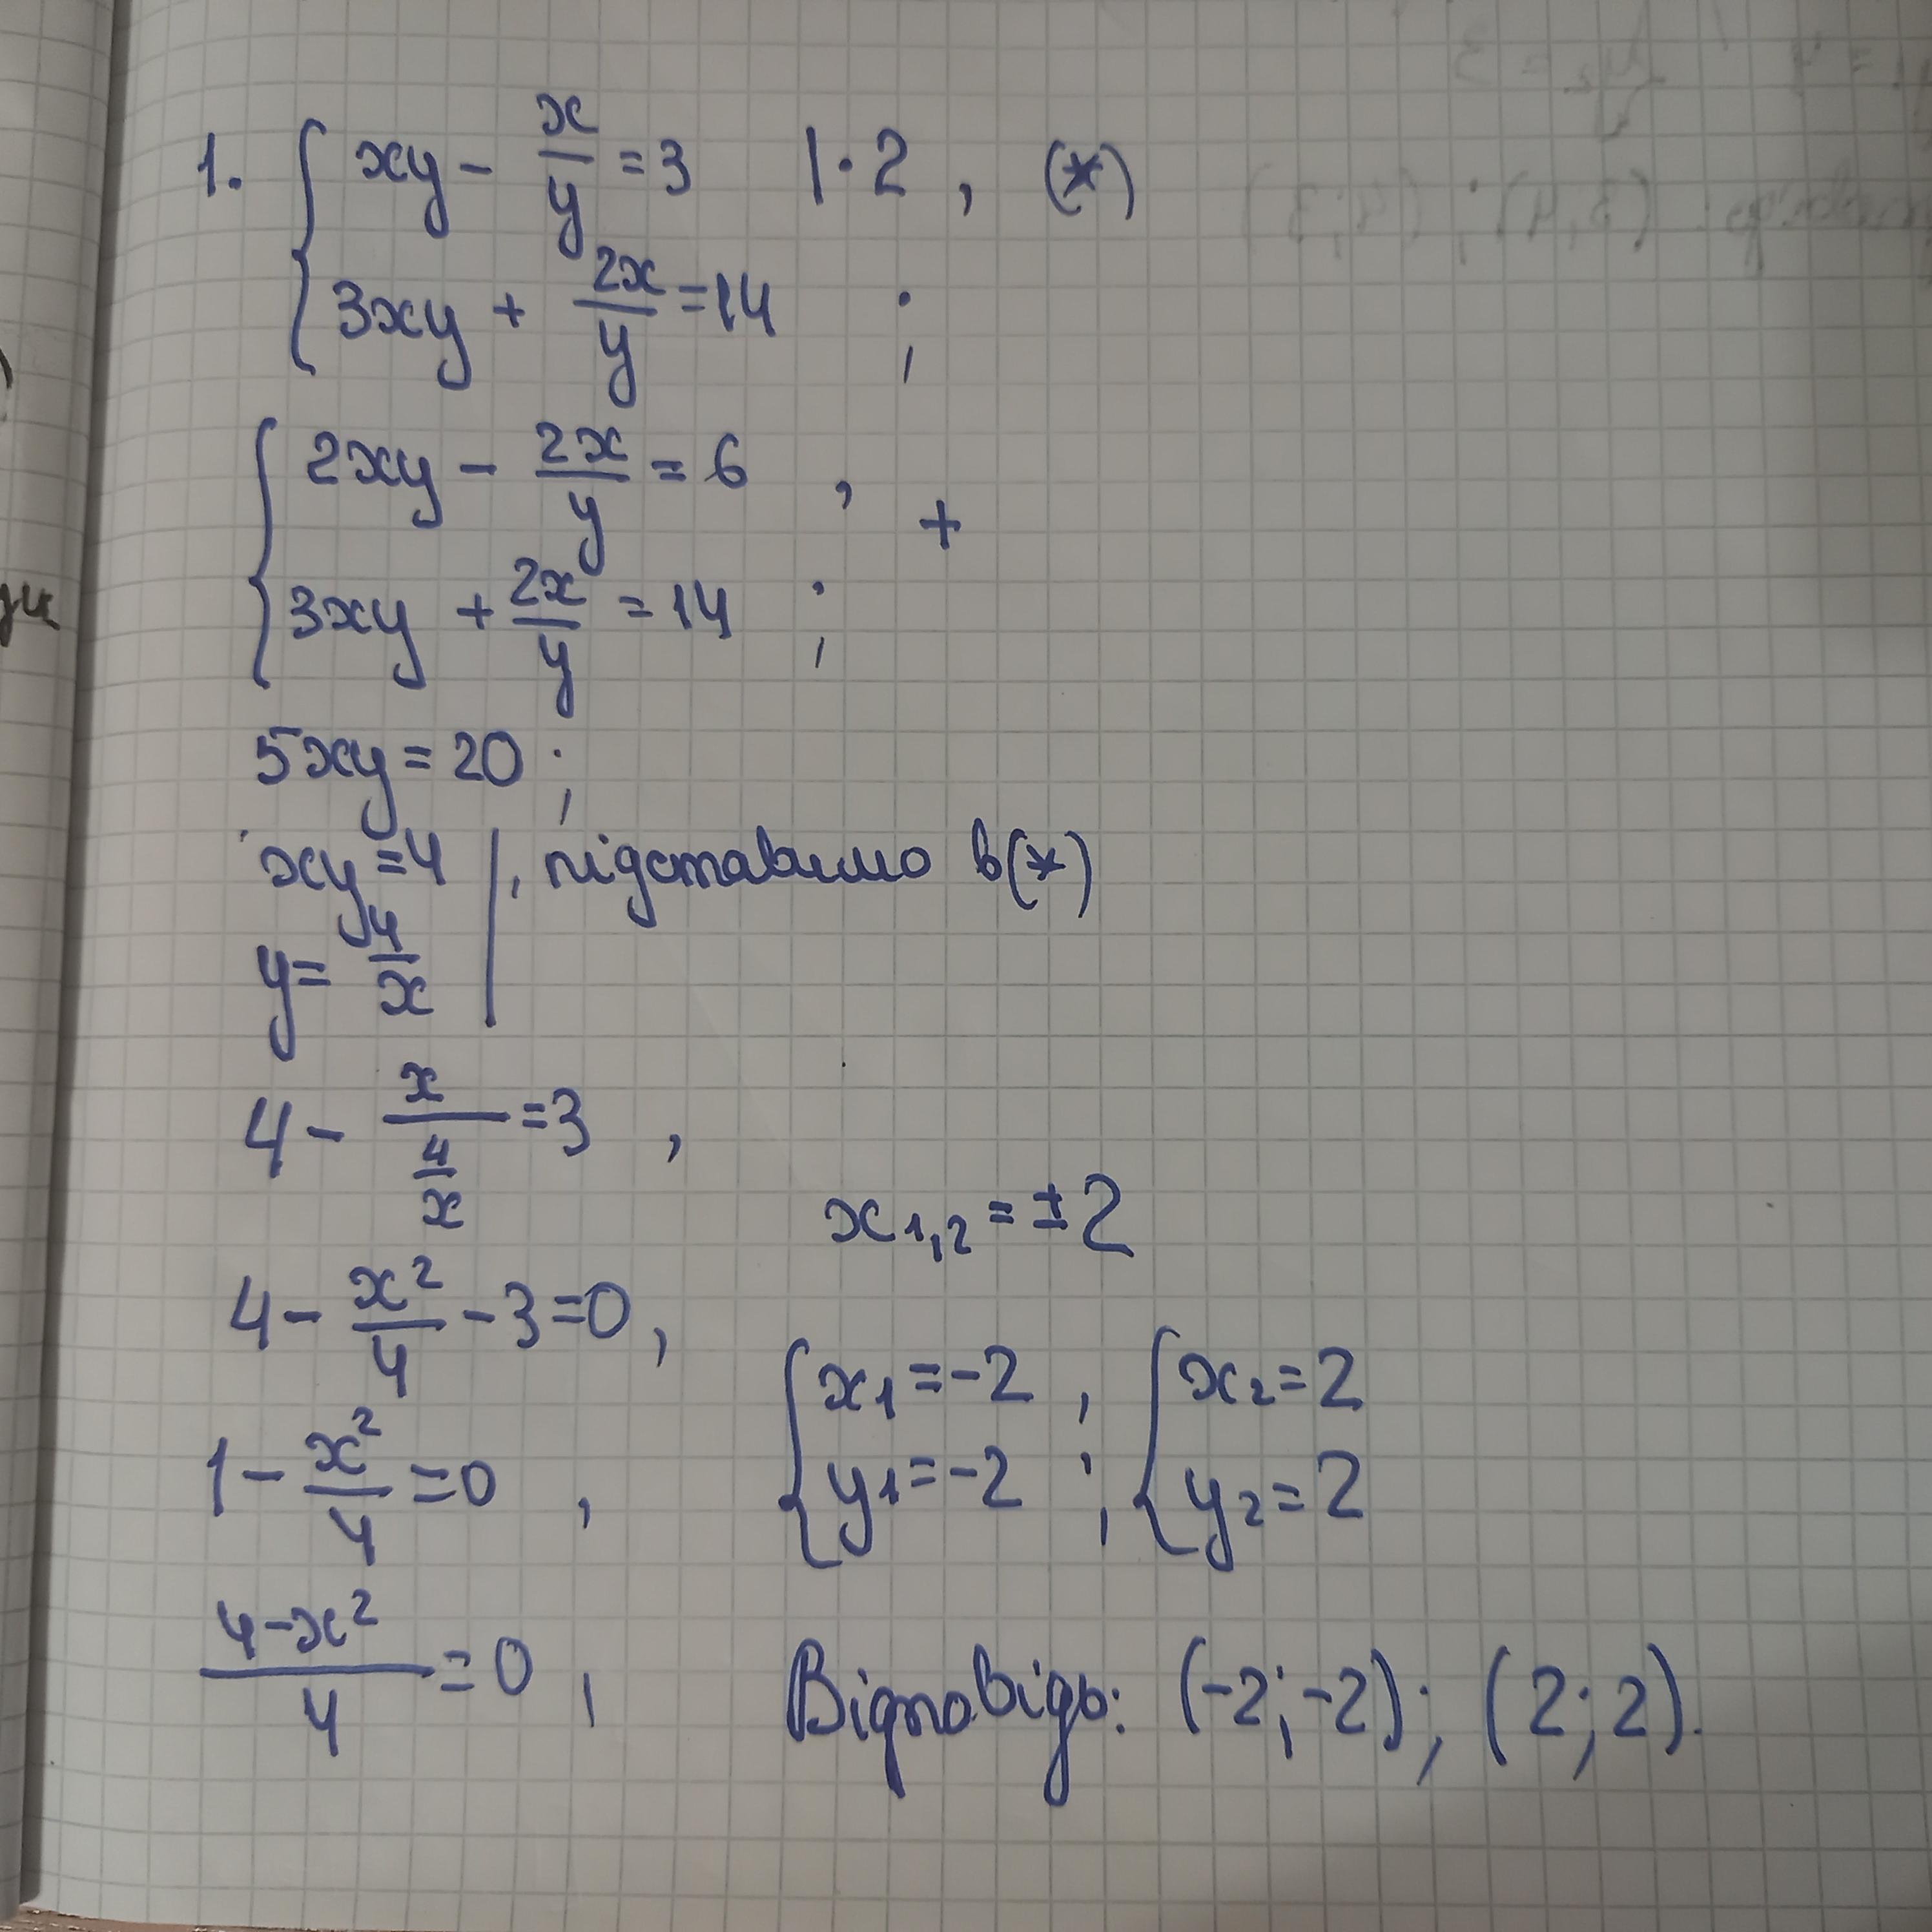 1. { xy - x/y = 3 | · 2 , (*)
3xy + 2x/y = 14 ;
{ 2xy - 2x/y = 6 , +
3xy + 2x/y = 14 ;
5xy = 20 ;
xy = 4 | , підставимо в (*)
y = 4/x
4 - x/(4/x) = 3 ,
4 - x²/4 - 3 = 0 ,
1 - x²/4 = 0 ,
(4 - x²)/4 = 0 ,
x₁,₂ = ± 2
{ x₁ = -2 , { x₂ = 2
y₁ = -2 ; y₂ = 2
Відповідь: (-2; -2); (2; 2).